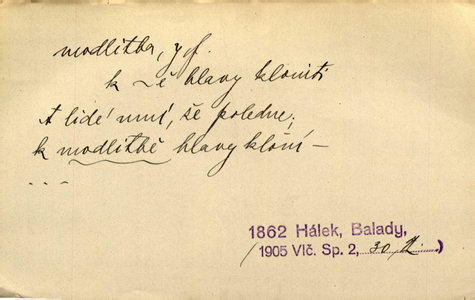 modlitba, y f.
k ~ě hlavy kloniti
A lidé umí, že poledne;
k modlitbě hlavy kloní –
...
1862 Hálek, Balady,
(1905 Vlč. Sp. 2, 30, )